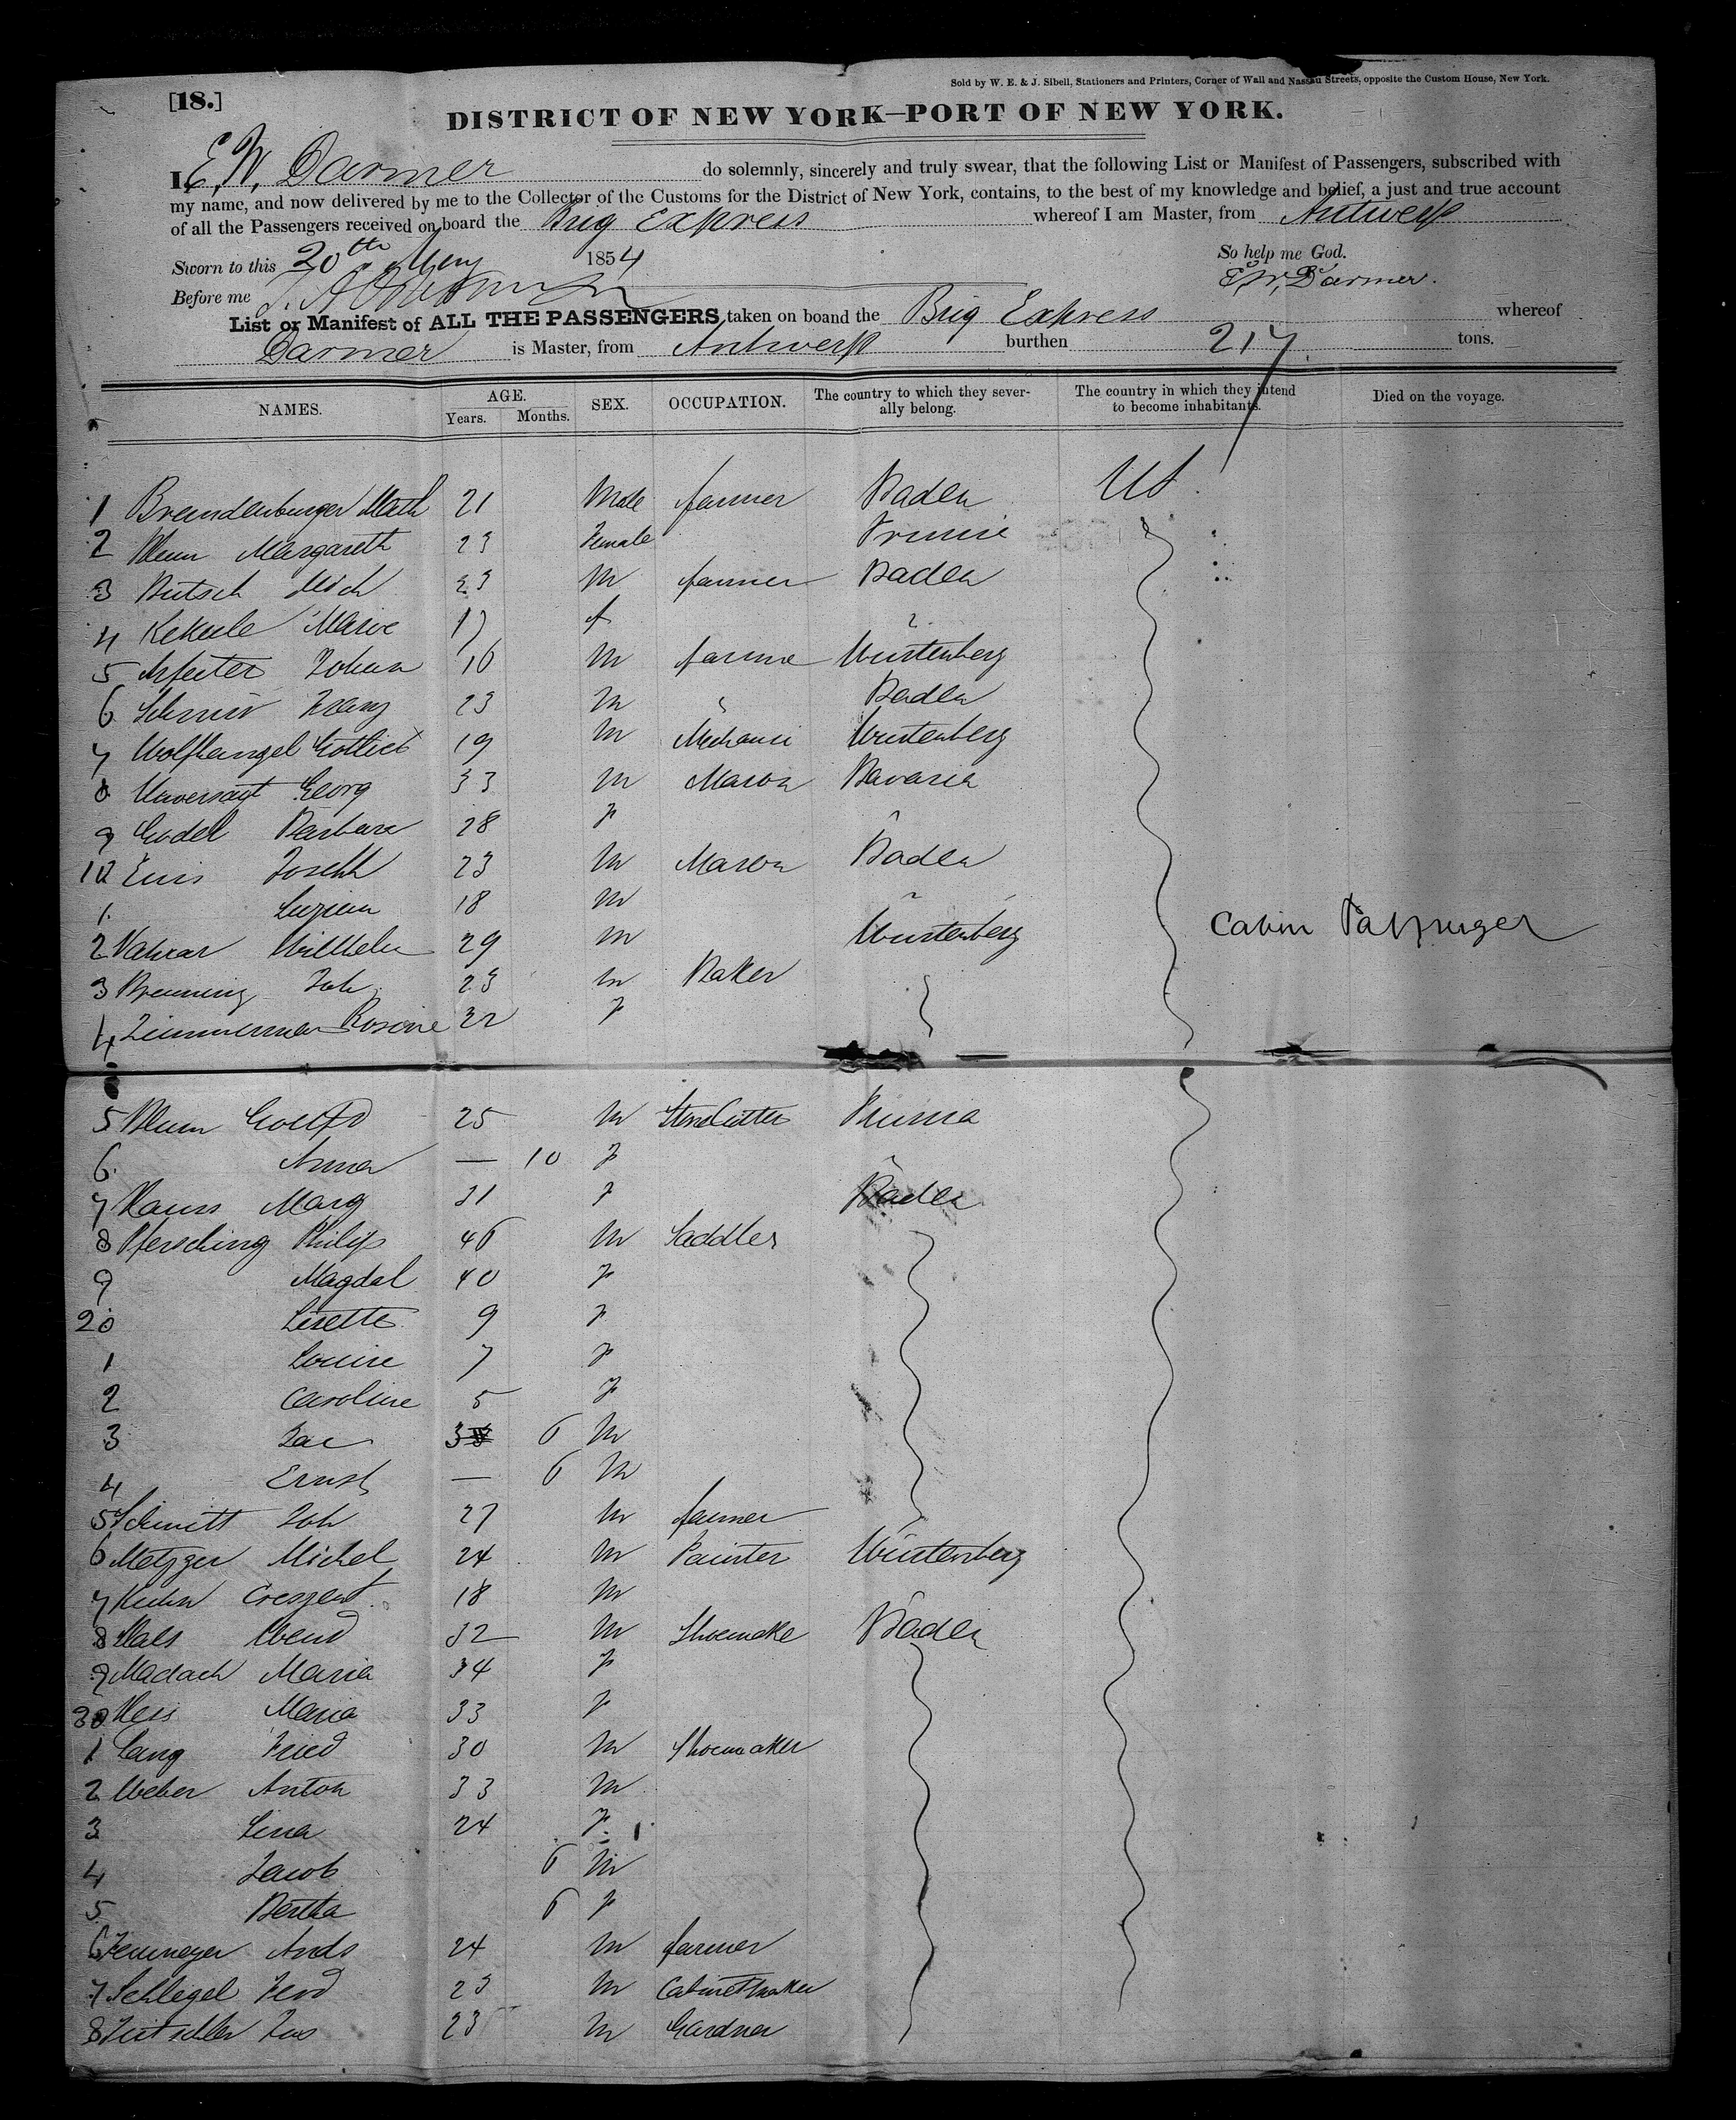 Sold by W. E. & J. Sibell, Stationers and Printers, Corner of Wall and Nassau Streets, opposite the Custom House, New York.
[18.]
DISTRICT OF NEW YORK—PORT OF NEW YORK.
I, E. W. Darmer do solemnly, sincerely and truly swear, that the following List or Manifest of Passengers, subscribed with
my name, and now delivered by me to the Collector of the Customs for the District of New York, contains, to the best of my knowledge and belief, a just and true account
of all the Passengers received on board the Brig Express whereof I am Master, from Antwerp
So help me God.
Sworn to this 20th May 1854
E. W. Darmer.
Before me
List or Manifest of ALL THE PASSENGERS taken on boand the Brig Express whereof
Darmer is Master, from Antwerp burthen 217 tons.
NAMES. AGE. Years. Months. SEX. OCCUPATION. The country to which they severally belong. The country in which they intend to become inhabitants. Died on the voyage.
1 Brandenburger Math 21 Male farmer Baden US
2 Blum Margareth 23 Female
3 Butsch Mich 23 m farmer Baden
4 Kekule Marie 17 f
5 Johan 16 m farme Würtenberg
6 Franz 23 m Baden
7 Wolfhangel Gottlieb 19 m Mechanic Würtenberg
8 Unversagt Georg 33 m Mason Bavaria
9 Godel Barbara 28 f
10 Joseph 23 m Mason Baden
1 18 m
2 Wilhelm 29 m Würtenberg Cabin Passenger
3 Breuning Joh 23 m Baker
4 Zimmerman Rosine 22 f
5 Blum 25 m Stone Cutter Prussia
6 Anna — 10 f
7 Marg 31 f Baden
8 Pfersching Philip 46 m Saddler
9 Magdal 40 f
20 Lisette 9 f
1 Louise 7 f
2 Caroline 5 f
3 Jac 3 6 m
4 Ernst — 6 m
5 Schmitt Joh 27 m farmer
6 Metzger Michel 24 m Painter Würtenberg
7 Kuhn Creszent 18 m
8 32 m Shoemake Baden
9 Madach Maria 34 f
30 Maria 33 f
1 Lang Fried 30 m Shoemaker
2 Weber Anton 33 m
3 Lina 24 f
4 Jacob 6 m
5 Bertha 6 f
6 Ands 24 m farmer
7 Schlegel Ferd 23 m Cabinetmaker
8 23 m Gardner